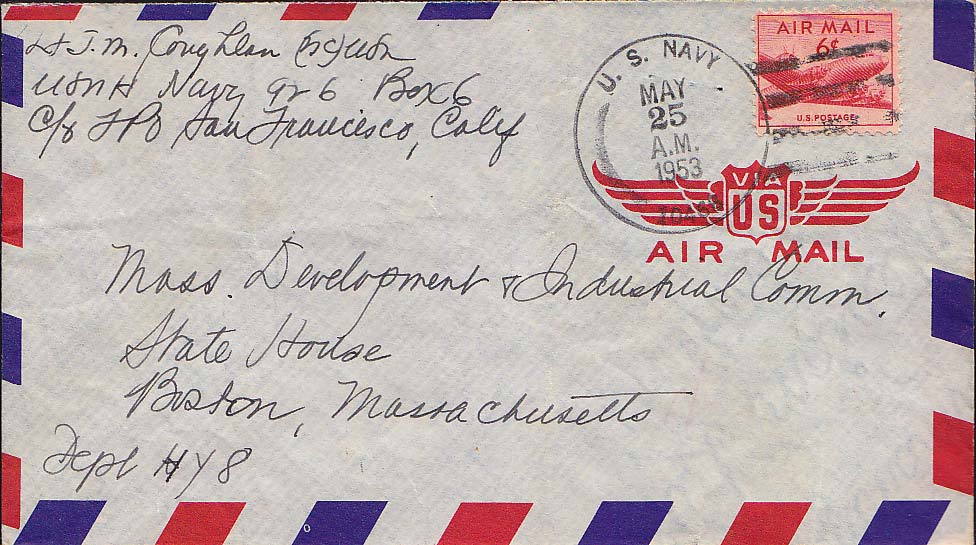 Lt J. M. Coughlan (SC) USN
USNH Navy 926 Box 6
C/o FPO San Francisco, Calif
AIR MAIL
6¢
U.S. POSTAGE
U. S. NAVY
MAY
25
A.M.
1953
VIA
US
AIR MAIL
Mass. Development & Industrial Comm.
State House
Boston, Massachusetts
Dept HY8